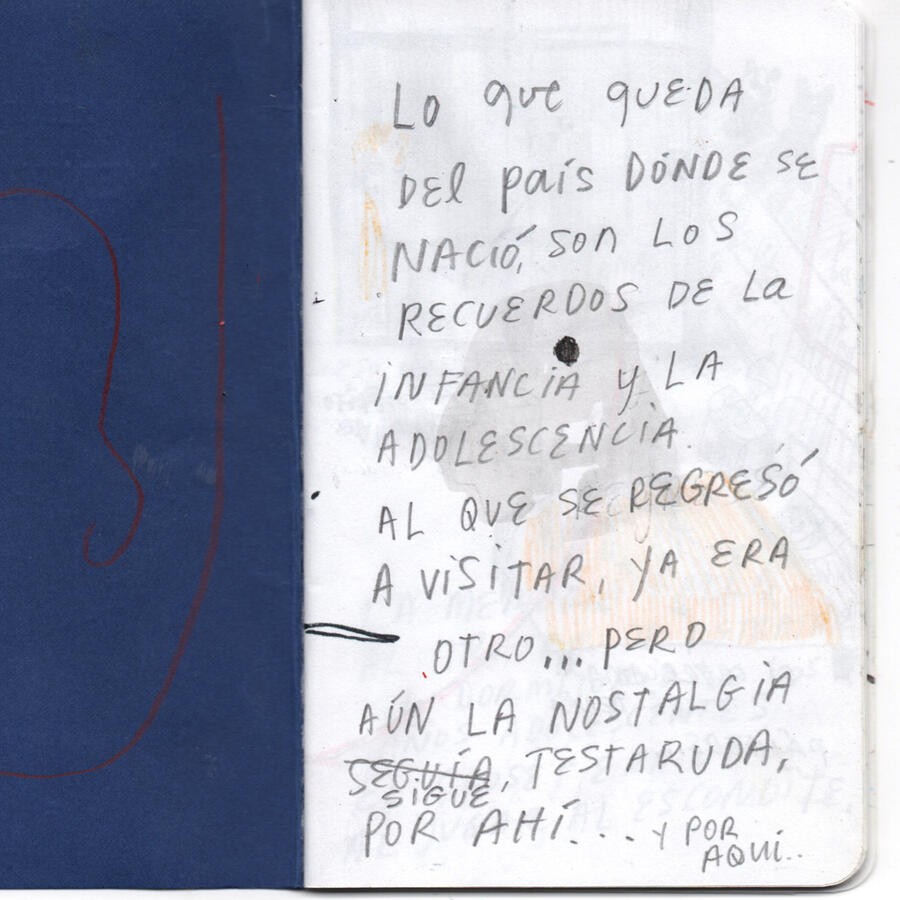 Lo que QUEDA
DEL país DÓNDE SE
NACIÓ, SON LOS
RECUERDOS DE La
INFANCIA Y LA
ADOLESCENCIA.
AL QUE SE REGRESÓ
A VISITAR, YA ERA
OTRO... PERO
AÚN LA NOSTALGIA
SEGUÍA, TESTARUDA,
SIGUE
POR AHÍ... Y POR
AQUÍ..